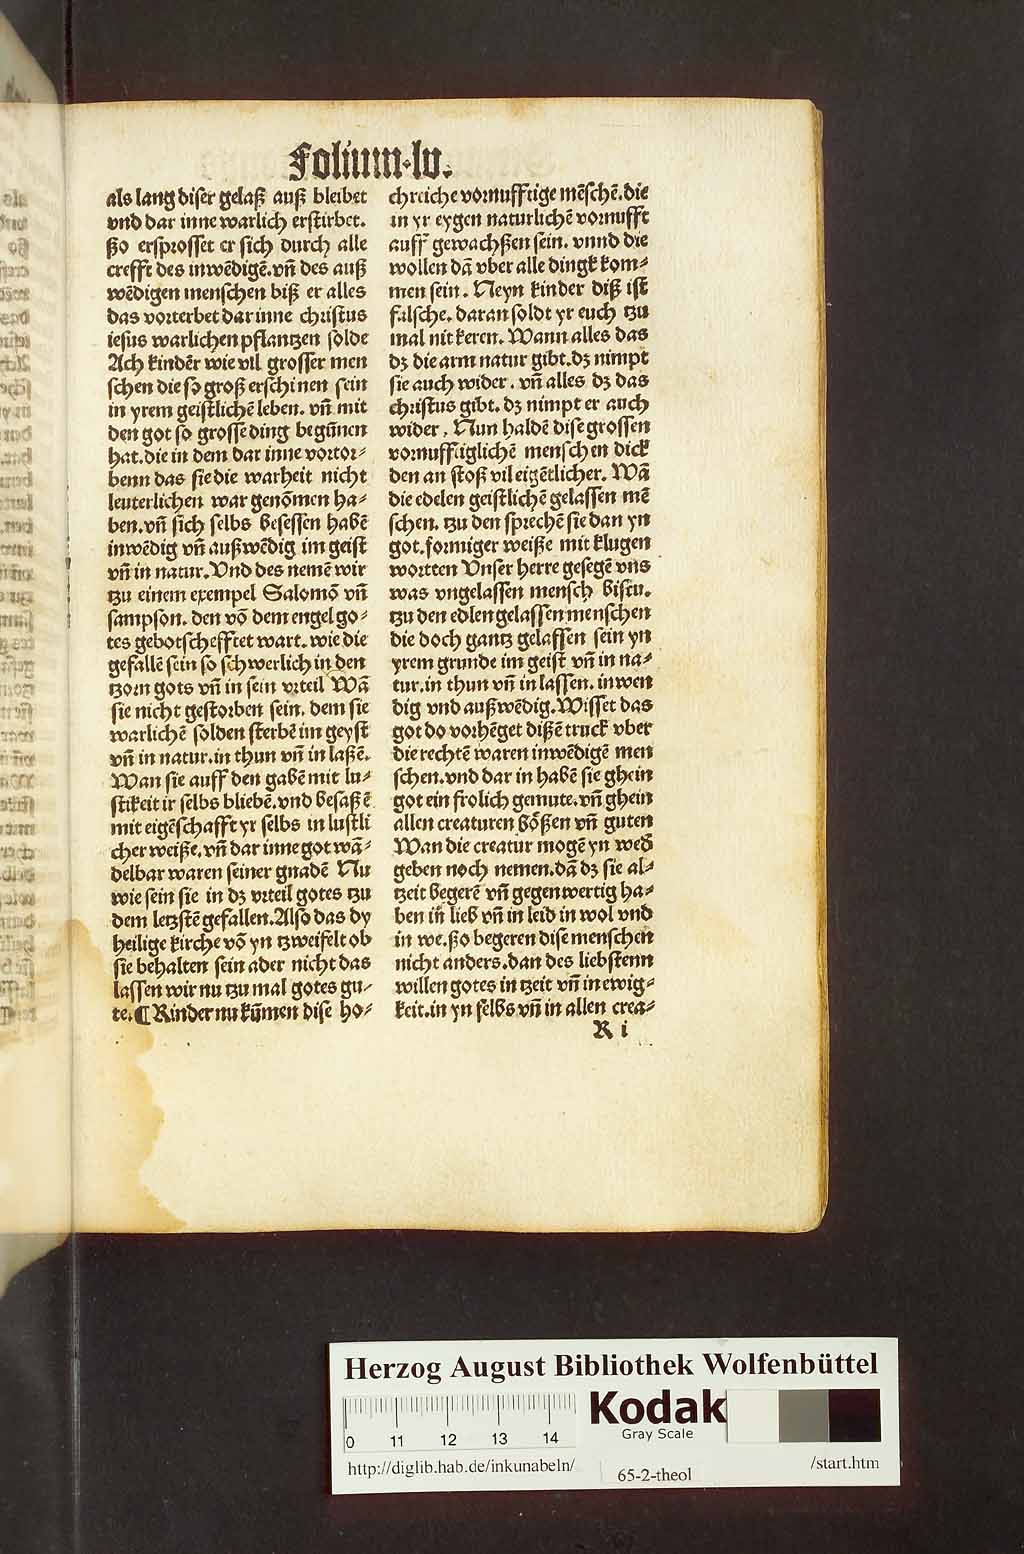 Folium·lv.
als lang diser gelaß auß bleibet
vnd dar inne warlich erstirbet.
ßo ersprosset er sich durch alle
crefft des inwēdigē.vn̄ des auß
wēdigen menschen biß er alles
das vorterbet dar inne christus
iesus warlichen pflantzen solde
Ach kindēr wie vil grosser men
schen die so groß erschinen sein
in yrem geistlichē leben. vn̄ mit
den got so grosse ding begūnen
hat.die in dem dar inne vortor⸗
benn das sie die warheit nicht
leuterlichen war genōmen ha⸗
ben.vn̄ sich selbs besessen habē
inwēdig vn̄ außwēdig im geist
vn̄ in natur.Vnd des nemē wir
tzu einem exempel Salomō vn̄
sampson. den vō dem engel go⸗
tes gebotschefftet wart. wie die
gefallē sein so schwerlich in den
tzorn gots vn̄ in sein vrteil Wā
sie nicht gestorben sein. dem sie
warlichē solden sterbē im geyst
vn̄ in natur.in thun vn̄ in laßē.
Wan sie auff den gabē mit lu⸗
stikeit ir selbs bliebē.vnd besaßē
mit eigēschafft yr selbs in lustli
cher weiße.vn̄ dar inne got wā⸗
delbar waren seiner gnadē Nu
wie sein sie in dꝫ vrteil gotes tzu
dem letzstē gefallen.Also das dy
heilige kirche vō yn tzweifelt ob
sie behalten sein ader nicht das
lassen wir nu tzu mal gotes gu⸗
te.¶ Kinder nu kūmen dise ho⸗
chreiche vornufftige mēschē.die
in yr eygen naturlichē vornufft
auff gewachßen sein. vnnd die
wollen dā vber alle dingk kom⸗
men sein. Neyn kinder diß ist
falsche. daran soldt yr euch tzu
mal nit keren. Wann alles das
dꝫ die arm natur gibt.dꝫ nimpt
sie auch wider. vn̄ alles dꝫ das
christus gibt. dꝫ nimpt er auch
wider. Nun haldē dise grossen
vornufftiglichē menschen dick
den an stoß vil eigētlicher. Wā
die edelen geistlichē gelassen mē
schen. tzu den sprechē sie dan yn
got.formiger weiße mit klugen
wortten Vnser herre gesegē vns
was vngelassen mensch bistu.
tzu den edlen gelassen menschen
die doch gantz gelassen sein yn
yrem grunde im geist vn̄ in na⸗
tur.in thun vn̄ in lassen. inwen
dig vnd außwēdig.Wisset das
got do vorhēget dißē truck vber
die rechtē waren inwēdigē men
schen.vnd dar in habē sie ghein
got ein frolich gemute.vn̄ ghein
allen creaturen bößen vn̄ guten
Wan die creatur mogē yn wed̄
geben noch nemen.dā dꝫ sie al⸗
tzeit begerē vn̄ gegenwertig ha⸗
ben in̄ lieb vn̄ in leid in wol vnd
in we.ßo begeren dise menschen
nicht anders.dan des liebstenn
willen gotes in tzeit vn̄ in ewig⸗
keit.in yn selbs vn̄ in allen crea⸗
K i
Herzog August Bibliothek Wolfenbüttel
Kodak
Gray Scale
0 11 12 13 14
http://diglib.hab.de/inkunabeln/
65-2-theol
/start.htm